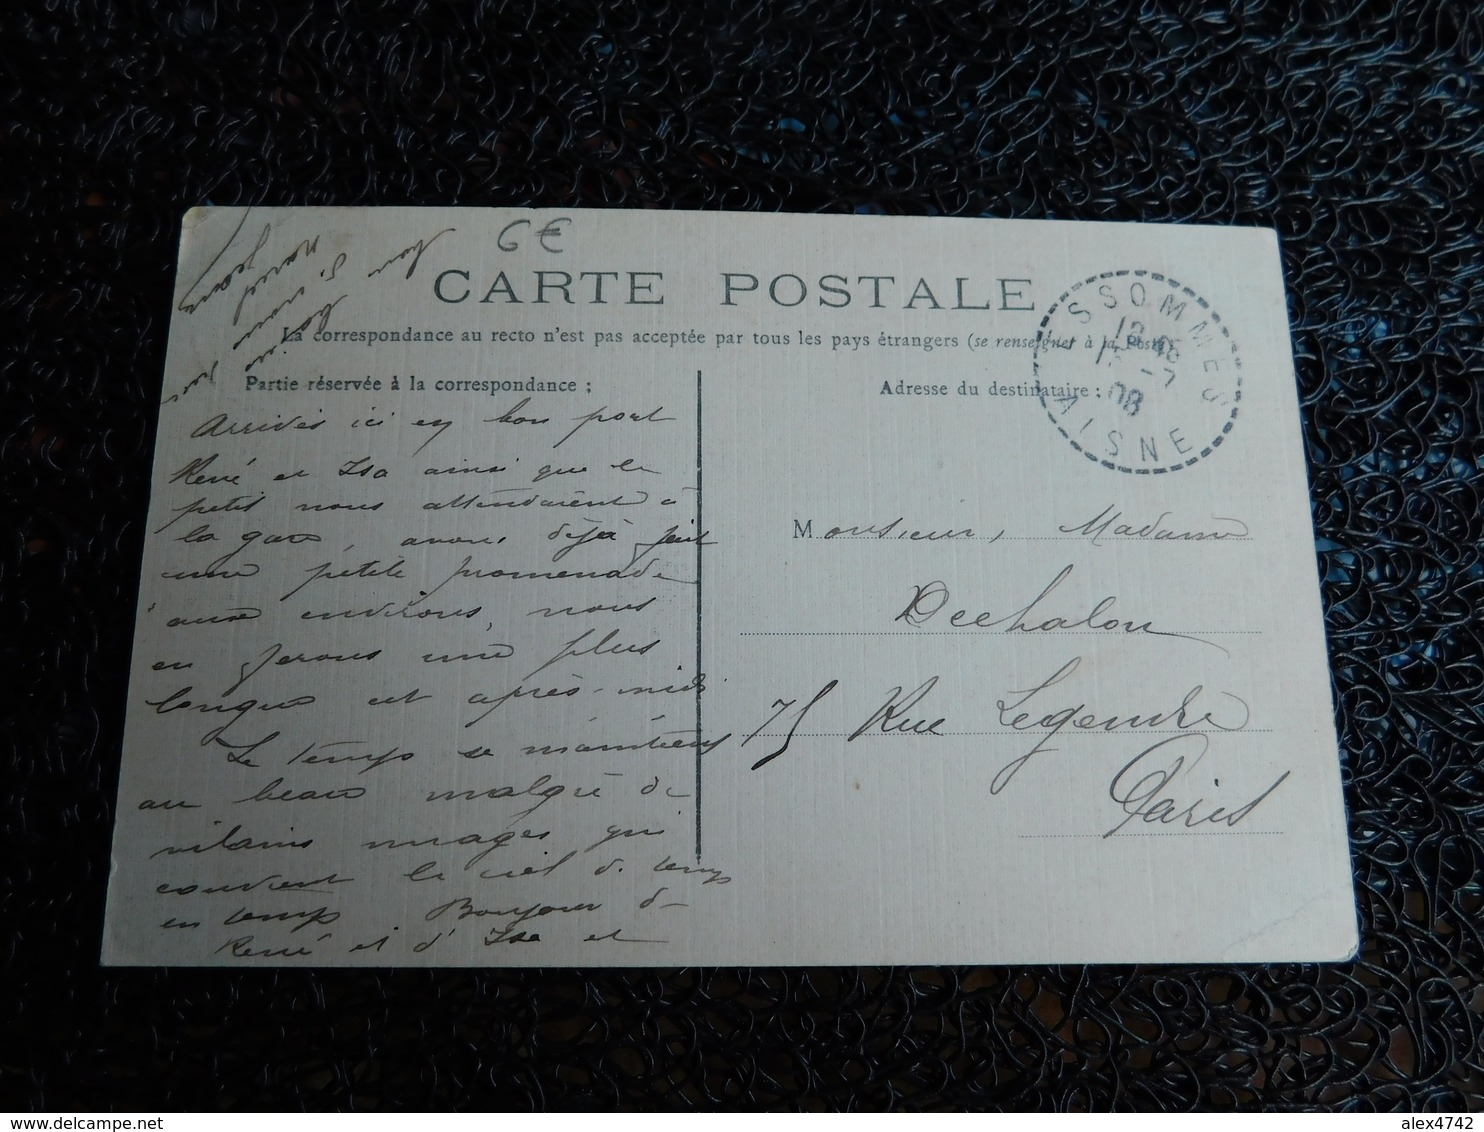 6€
CARTE POSTALE
La correspondance au recto n'est pas acceptée par tous les pays étrangers (se renseigner à la Poste)
Partie réservée à la correspondance ;
Adresse du destinataire ;
ESSOMMES
08
AISNE
Arrivés ici en bon port
René et Isa ainsi que le
petit nous attendaient à
la gare, avons déjà fait
une petite promenade
aux environs, nous
en ferons une plus
longue cet après-midi
Le temps se maintient
au beau malgré de
vilains nuages qui
couvrent le ciel de temps
en temps Bonjour de
René et d'Isa et
Monsieur, Madame
Dechalon
75 Rue Legendre
Paris
delcampe.net
alex4742